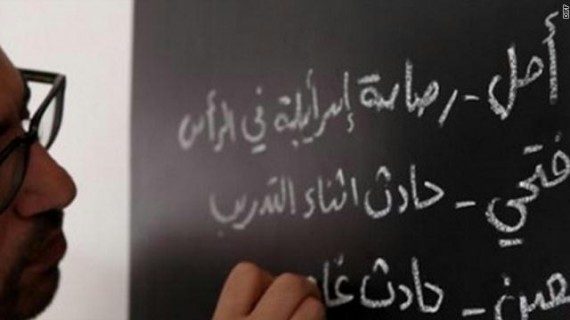 أمل - رصاصة إسرائيلية في الرأس
فتحي - حادث اثناء التدريب
حادث
DIFF